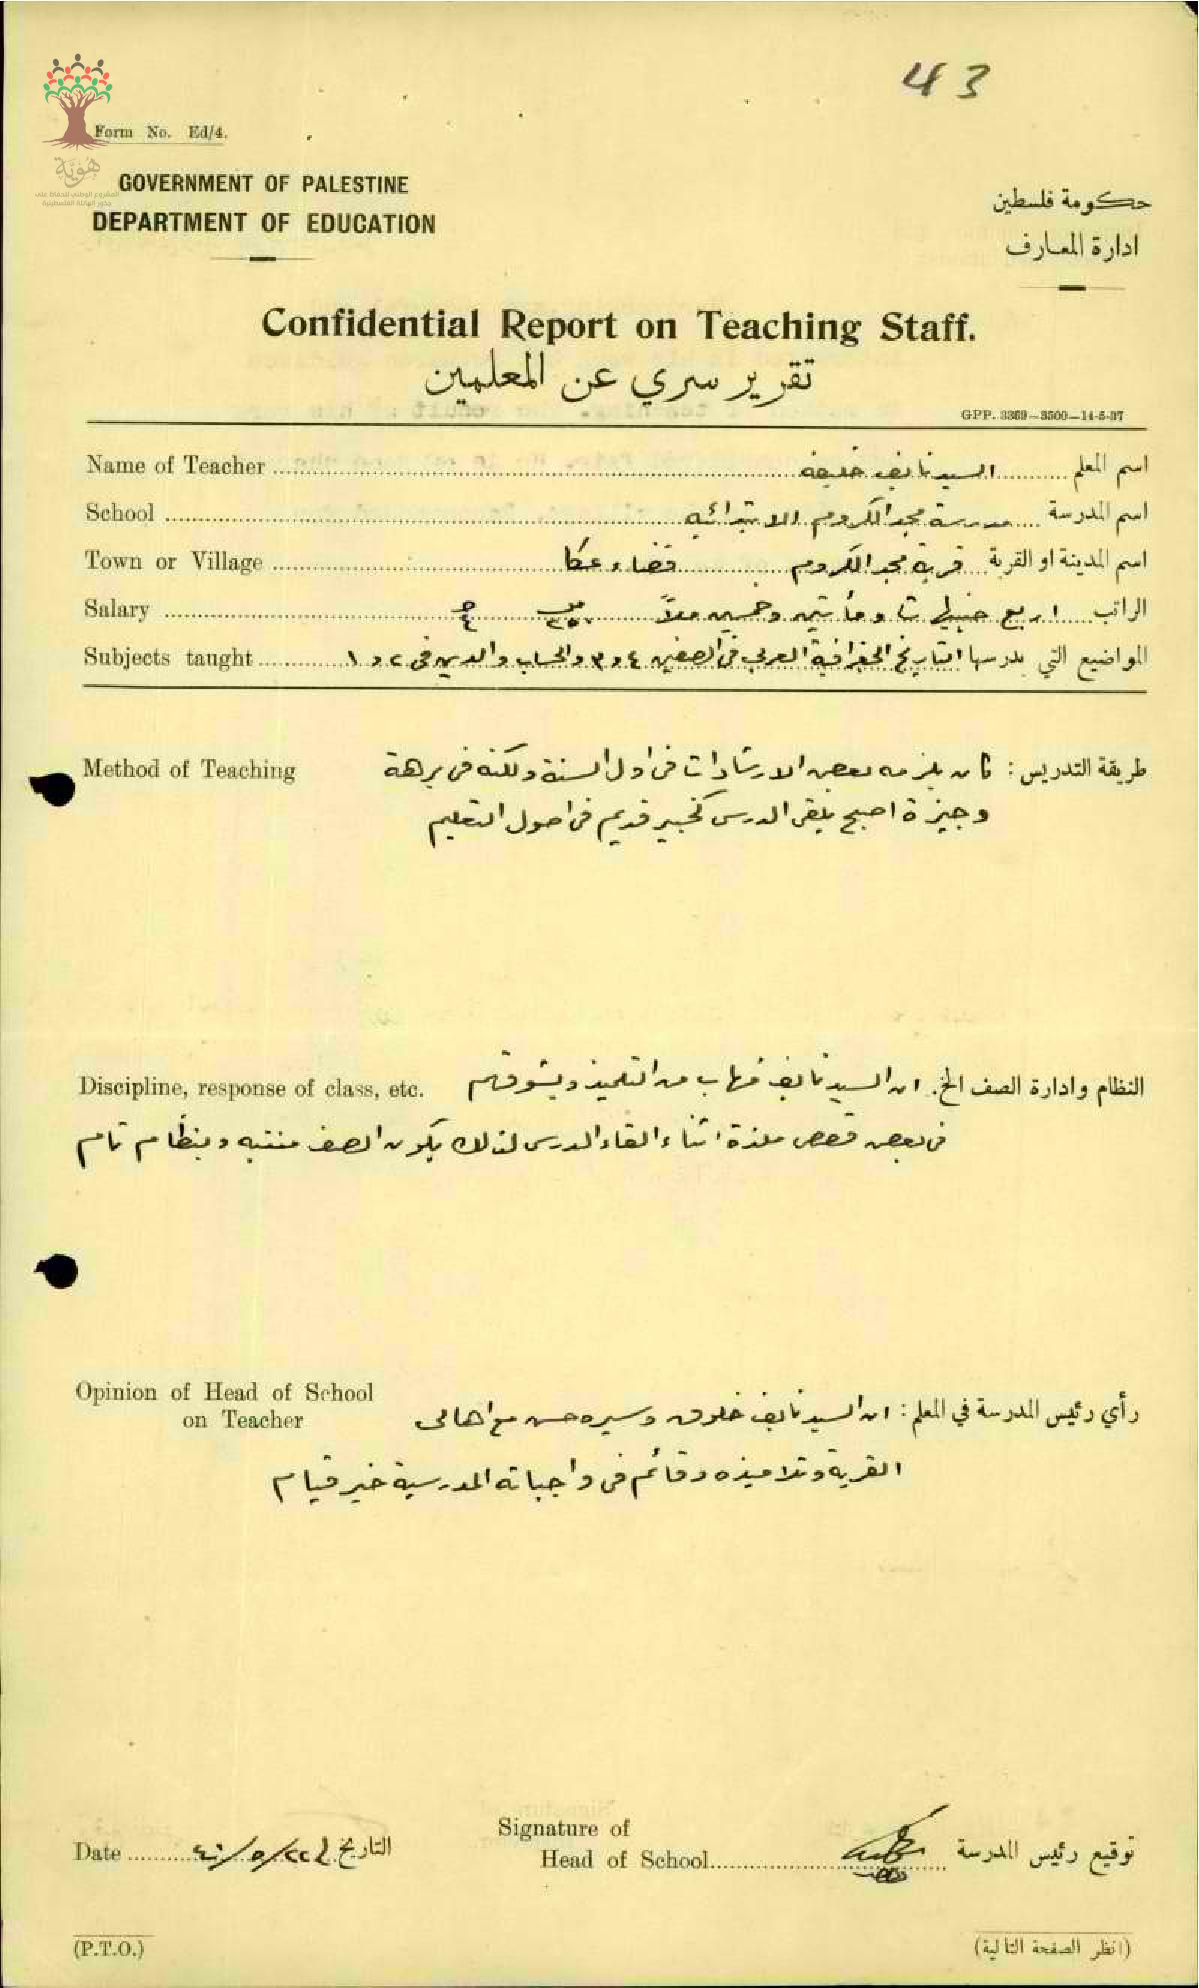 43
Form No. Ed/4.
هُوِيَّة
المشروع الوطني للحفاظ على
جذور العائلة الفلسطينية
GOVERNMENT OF PALESTINE
DEPARTMENT OF EDUCATION
حكومة فلسطين
ادارة المعارف
Confidential Report on Teaching Staff.
تقرير سري عن المعلمين
GPP. 3369—3500—14-5-37
Name of Teacher السيد نايف خليفه اسم المعلم
School مدرسة مجد الكروم الابتدائيه اسم المدرسة
Town or Village قرية مجد الكروم قضاء عكا اسم المدينة او القرية
Salary اربع جنيهات ومأتين وخمسين ملاً ٢٥٠ ٤ الراتب
Subjects taught التاريخ الجغرافية العربي في الصفين ٤ و ٣ والحساب والدين في ٢ و ١ المواضيع التي يدرسها
Method of Teaching طريقة التدريس : كان يلزمه بعض الارشادات في اول السنة ولكنه في برهة
وجيزة اصبح يلقي الدرس كخبير قديم في اصول التعليم
Discipline, response of class, etc. النظام وادارة الصف الخ. ان السيد نايف مهاب من التلاميذ ويشوقهم
في بعض قصص ملذة اثناء القاء الدرس لذلك يكون الصف منتبه وبنظام تام
Opinion of Head of School
on Teacher
رأي رئيس المدرسة في المعلم : ان السيد نايف خلوق وسيره حسن مع اهالي
القرية وتلاميذه وقائم في واجباته المدرسية خير قيام
Date ٢٢/٥/٤٠ التاريخ
Signature of
Head of School توقيع رئيس المدرسة
(P.T.O.)
(انظر الصفحة التالية)